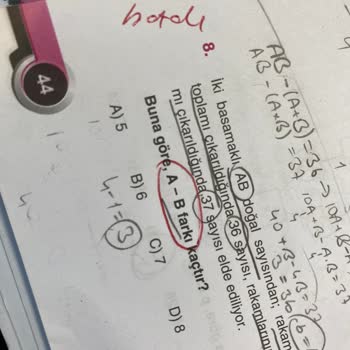 hatalı
8.
İki basamaklı AB doğal sayısından; rakam
toplamı çıkarıldığında 36 sayısı, rakamların
mı çıkarıldığında 37 sayısı elde ediliyor.
Buna göre, A – B farkı kaçtır?
A) 5
B) 6
C) 7
D) 8
4-1=3
44
AB - (A+B) = 36
AB - (A+B) = 37
10A+B-A.B=37
40+B-4B=37
3=3B